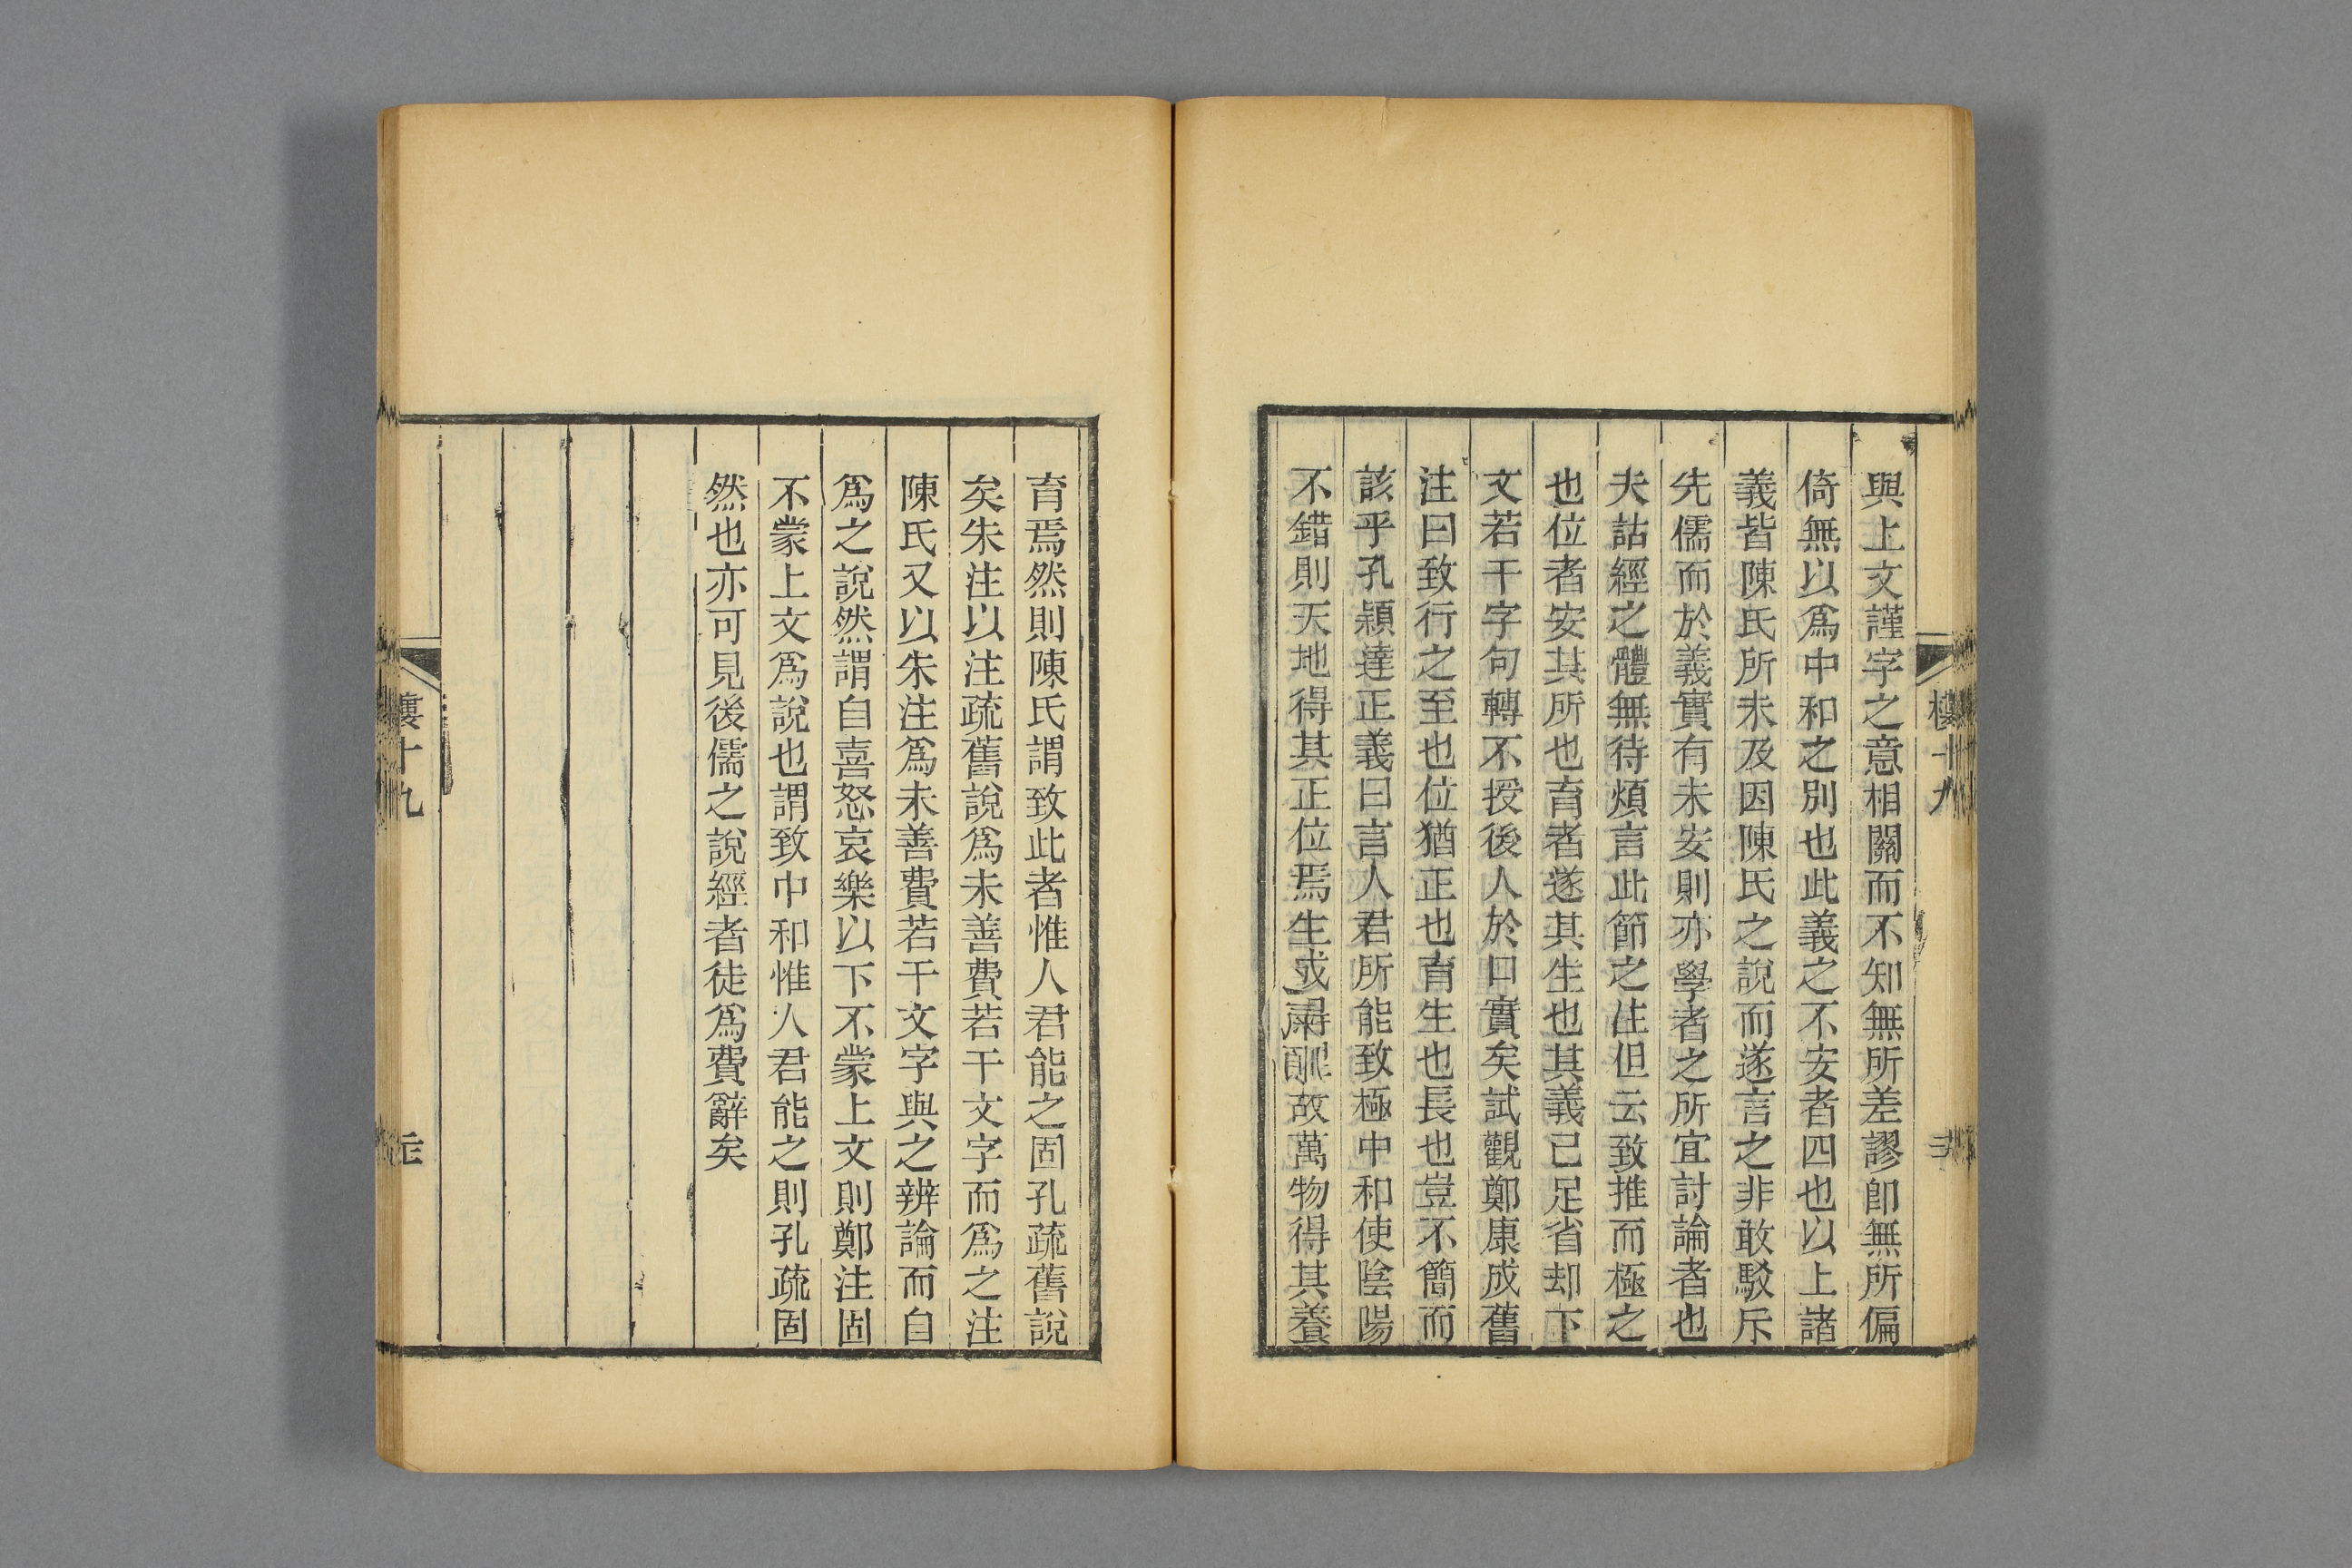 與上文謹字之意相關而不知無所差謬卽無所偏
倚無以爲中和之別也此義之不安者四也以上諸
義皆陳氏所未及因陳氏之說而遂言之非敢駁斥
先儒而於義實有未安則亦學者之所宜討論者也
夫詁經之體無待煩言此節之注但云致推而極之
也位者安其所也育者遂其生也其義已足省却下
文若干字句轉不授後人於口實矣試觀鄭康成舊
注曰致行之至也位猶正也育生也長也豈不簡而
該乎孔穎達正義曰言人君所能致極中和使陰陽
不錯則天地得其正位焉生成得理故萬物得其養
育焉然則陳氏謂致此者惟人君能之固孔疏舊說
矣朱注以注疏舊說爲未善費若干文字而爲之注
陳氏又以朱注爲未善費若干文字與之辨論而自
爲之說然謂自喜怒哀樂以下不蒙上文則鄭注固
不蒙上文爲說也謂致中和惟人君能之則孔疏固
然也亦可見後儒之說經者徒爲費辭矣
樓十九